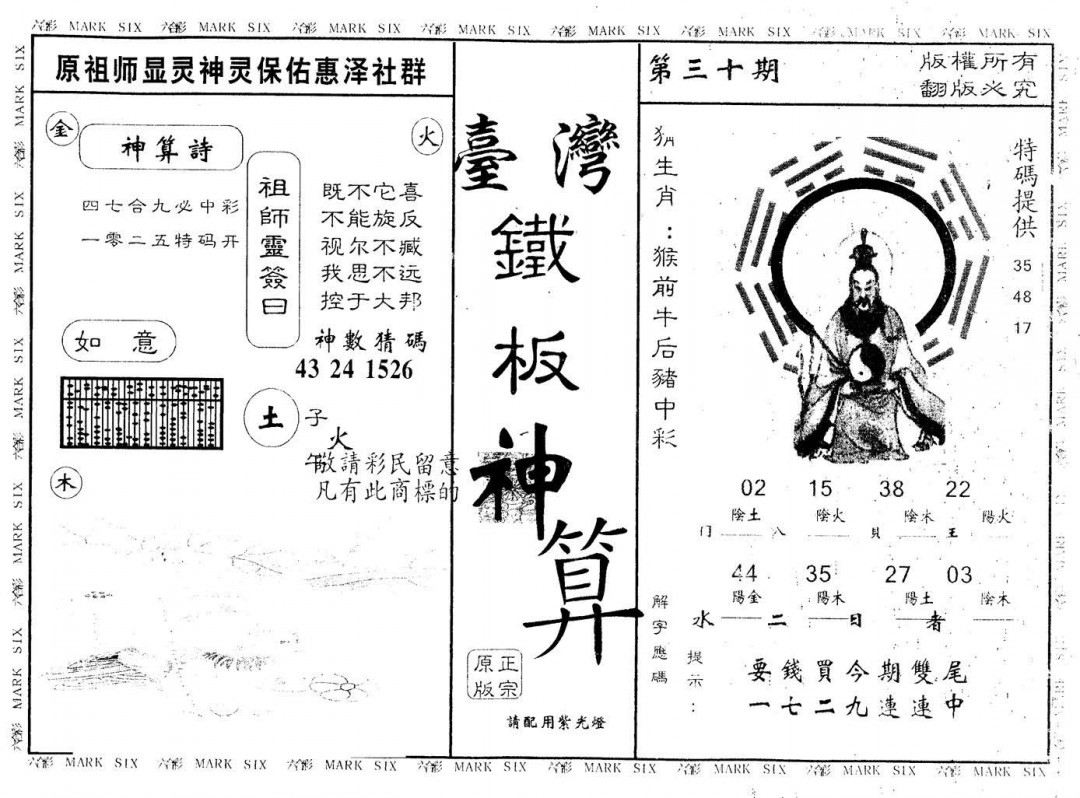 六合彩 MARK SIX 六合彩 MARK SIX 六合彩 MARK SIX 六合彩 MARK SIX 六合彩 MARK SIX 六合彩 MARK SIX 六合彩 MARK SIX 六合彩 MARK SIX
原祖师显灵神灵保佑惠泽社群
金
火
神算詩
四七合九必中彩
一零二五特码开
祖師靈簽曰
既不它喜
不能旋反
视尔不臧
我思不远
控于大邦
神數猜碼
43 24 1526
如 意
土
子
火
午
敬請彩民留意
凡有此商標的
木
臺灣
鐵
板
神
算
正宗
原版
請配用紫光燈
第三十期
版權所有
翻版必究
猜生肖：猴前牛后豬中彩
特碼提供
35
48
17
02 15 38 22
陰土 陰火 陰木 陽火
门 八 貝 王
44 35 27 03
陽金 陽木 陽土 陰木
水 二 日 者
解字應碼
提示：
要錢買今期雙尾
一七二九連連中
六合彩 MARK SIX 六合彩 MARK SIX 六合彩 MARK SIX 六合彩 MARK SIX 六合彩 MARK SIX 六合彩 MARK SIX 六合彩 MARK SIX 六合彩 MARK SIX